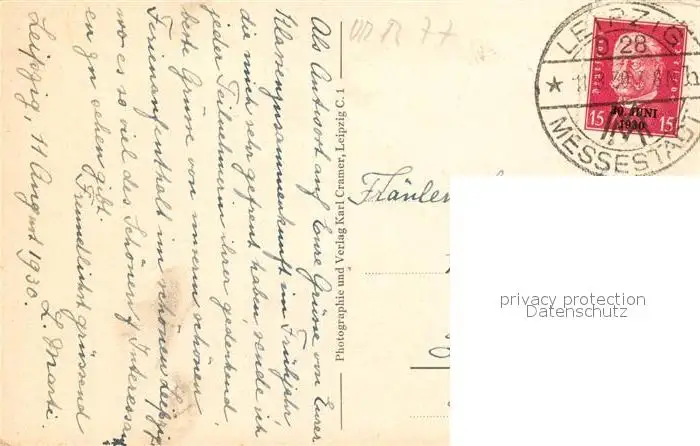 Als Antwort auf Eure Grüsse von Eurer
Klassenzusammenkunft im Frühjahr,
die mich sehr gefreut haben, sende ich
jeder Teilnehmerin ihrer gedenkend,
beste Grüsse von unserm schönen
Ferienaufenthalt im schönen Leipzig,
wo es so viel des Schönen & Interessan-
en zu sehen gibt.
Freundlichst grüssend
L. Marti.
Leipzig, 11 August 1930.
Photographie und Verlag Karl Cramer, Leipzig C. 1
LEIPZIG
28
MESSESTADT
15 15
30. JUNI
1930
Fräulein
privacy protection
Datenschutz